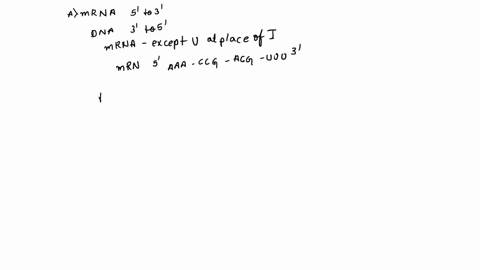 A> mRNA 5' to 3'
DNA 3' to 5'
mRNA - except U at place of T
mRN 5' AAA - CCG - ACG - UUU 3'